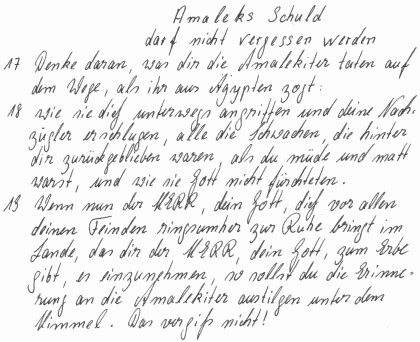 Amaleks Schuld
darf nicht vergessen werden
17 Denke daran, was dir die Amalekiter taten auf
dem Wege, als ihr aus Ägypten zogt:
18 wie sie dich unterwegs angriffen und deine Nach-
zügler erschlugen, alle die Schwachen, die hinter
dir zurückgeblieben waren, als du müde und matt
warst, und wie sie Gott nicht fürchteten.
19 Wenn nun der HERR, dein Gott, dich vor allen
deinen Feinden ringsumher zur Ruhe bringt im
Lande, das dir der HERR, dein Gott, zum Erbe
gibt, es einzunehmen, so sollst du die Erinne-
rung an die Amalekiter austilgen unter dem
Himmel. Das vergiß nicht!